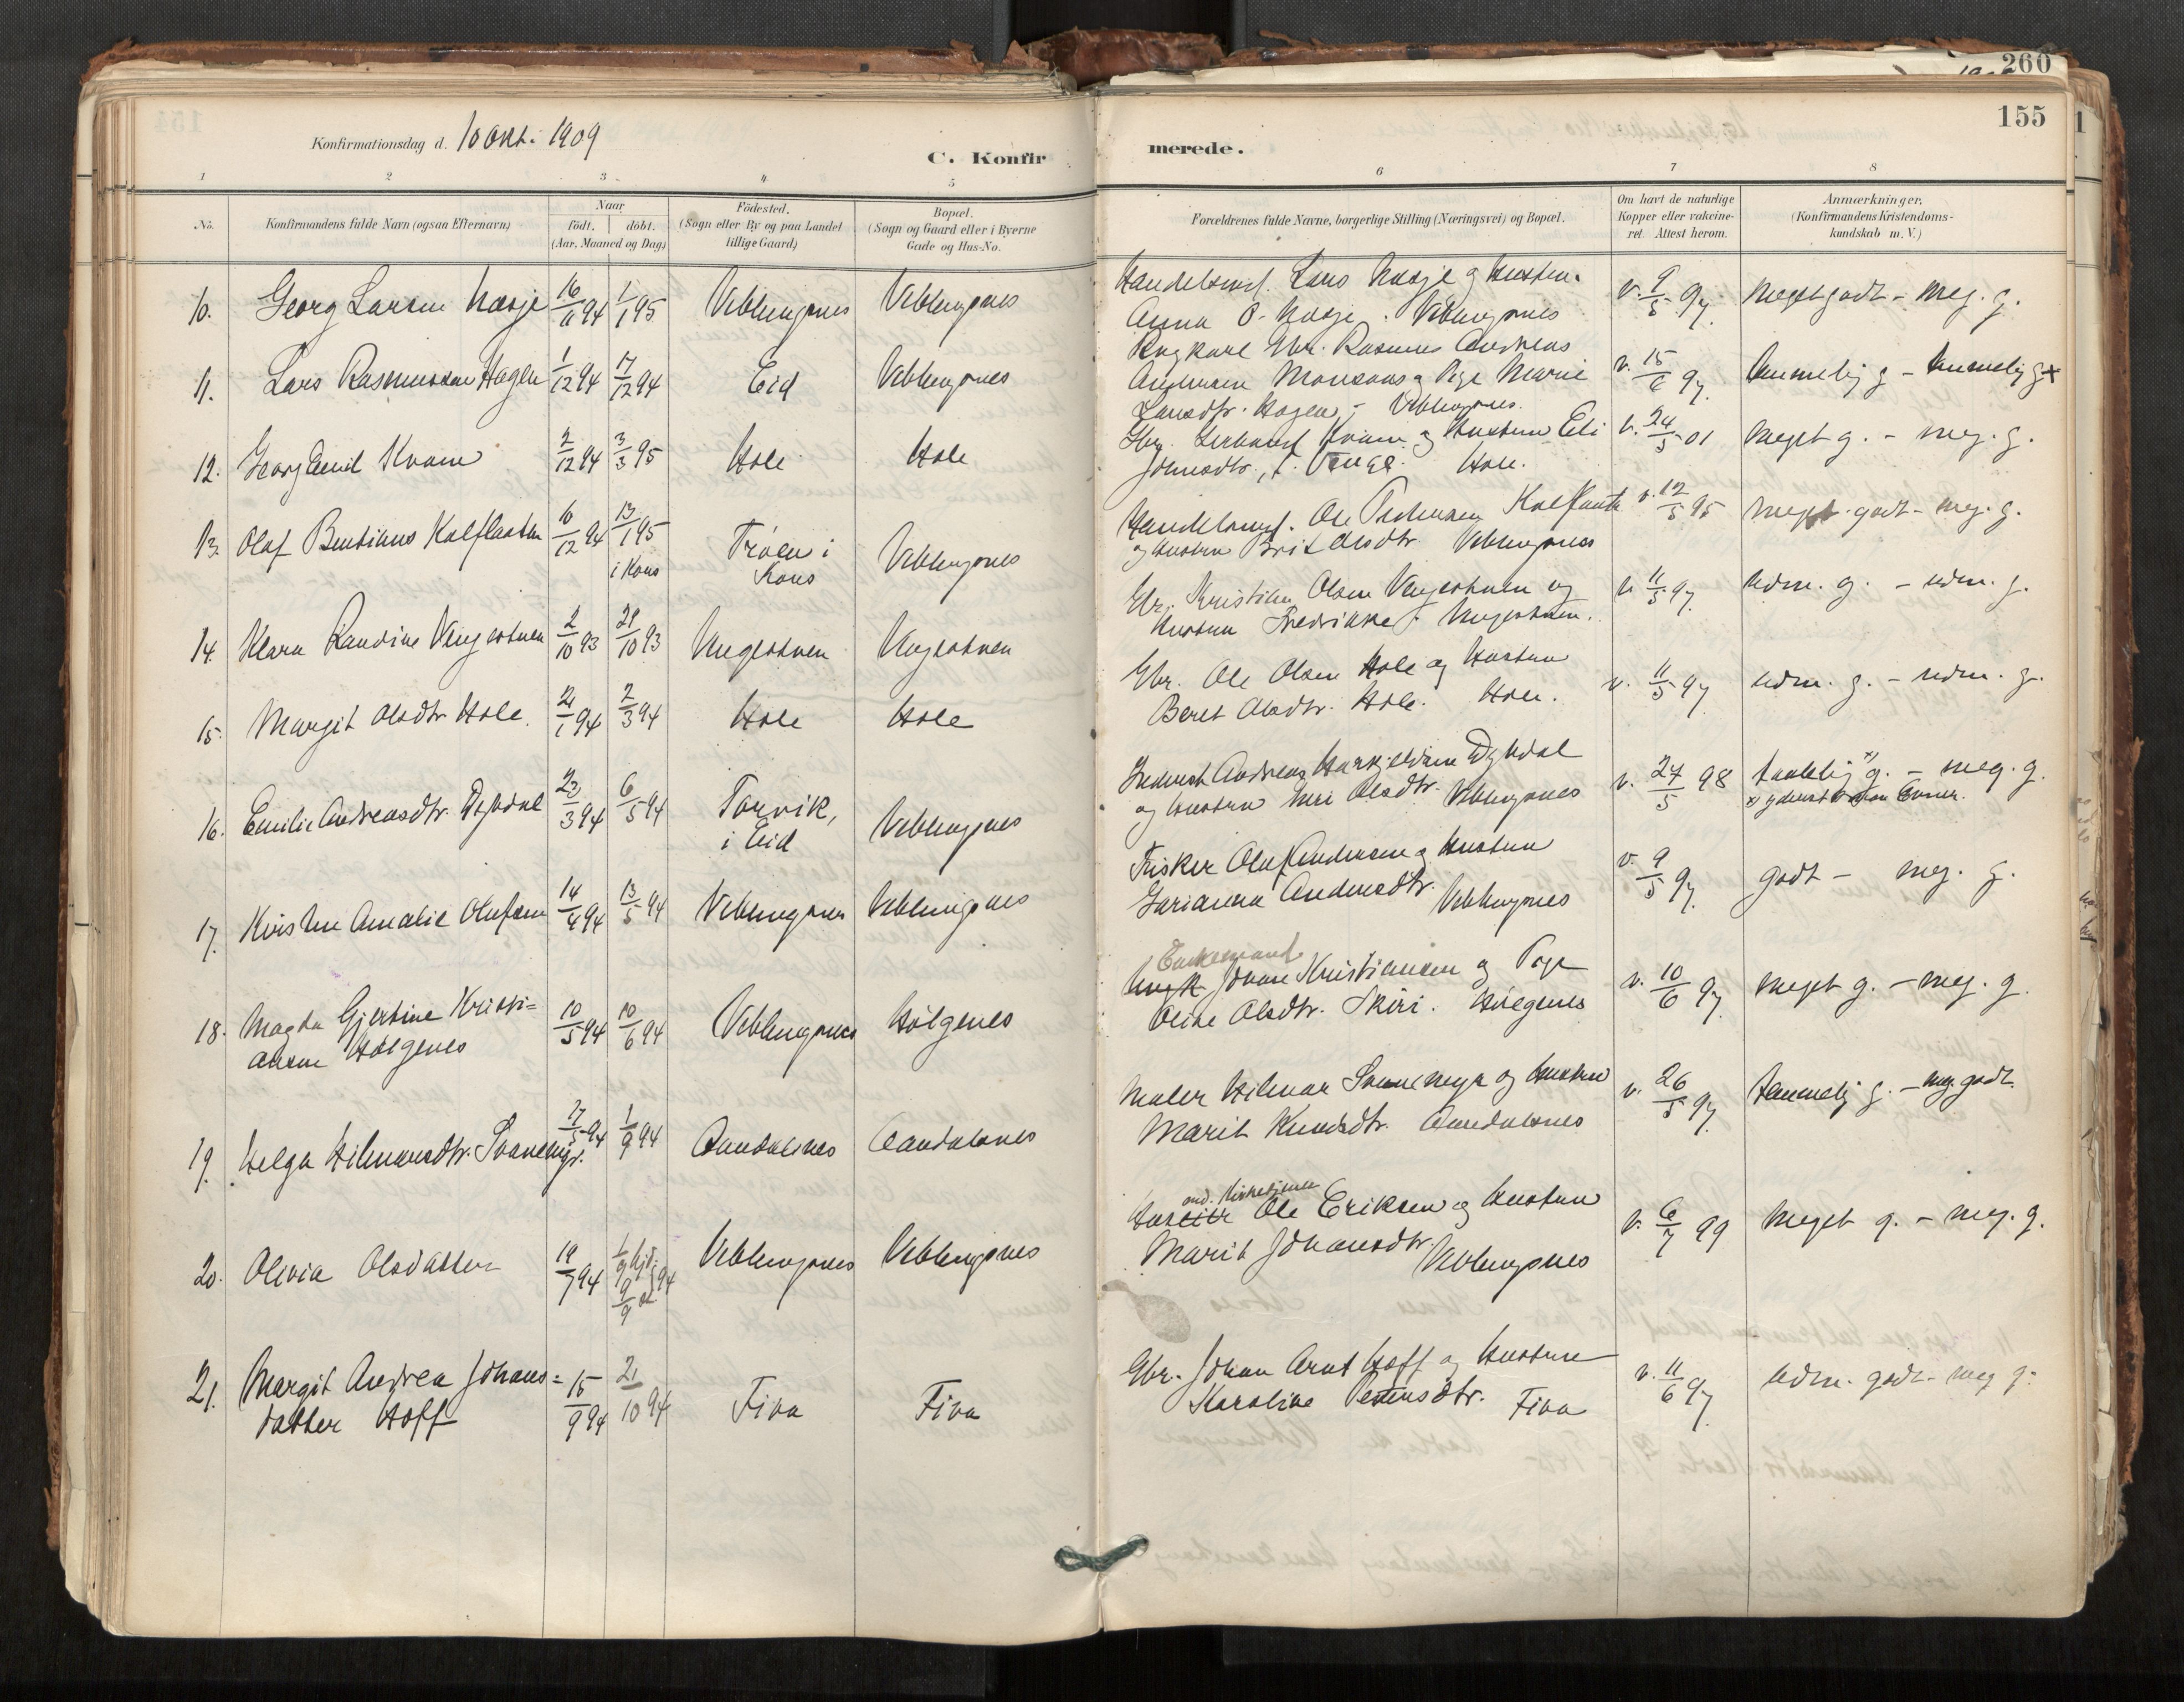 260
155
Konfirmationsdag d. 10 Okt. 1909
C. Konfir merede.
1 2 3 4 5 6 7 8
No. Konfirmandens fulde Navn (ogsaa Efternavn) Naar födt. döbt. (Aar, Maaned og Dag) Födested. (Sogn eller By og paa Landet tillige Gaard) Bopæl. (Sogn og Gaard eller i Byerne Gade og Hus-No. Forældrenes fulde Navne, borgerlige Stilling (Næringsvei) og Bopæl. Om havt de naturlige Kopper eller vakcine-ret. Attest herom. Anmærkninger. (Konfirmandens Kristendoms-kundskab m.V.)
10. Georg Larsen Næsje 16/11 94 1/1 95 Veblungsnes Veblungsnes Handelsmd. Lars Næsje og Hustru
Anna O. Næsje. Veblungsnes v. 9/5 97. meget godt - meg. g.
11. Lars Rasmussen Hagen 1/12 94 17/12 94 Eid Veblungsnes Ungkarl Gbr. Rasmus Andreas
Andersen Monsaas og Pige Marie
Larsdtr. Hagen, - Veblungsnes. v. 15/6 97. temmelig g - temmelig g +
12. Georg Emil Kvam 2/12 94 3/3 95 Hole Hole Gbr. Kvam og Hustru Eli
Johnsdtr., f. Venge. Hole. v. 24/5 01 meget g. - meg. g.
13. Olaf Bentinus Kalflaaten 10/12 94 13/1 95
i Kors Tröen i
Kors Veblungsnes Handelsmd. Ole Pedersen Kalflaaten
og Hustru Brit Olsdtr. Veblungsnes v. 12/5 95 meget godt - meg. g.
14. Klara Randine Vengestuen 2/10 93 29/10 93 Vengestuen Vengestuen Gbr. Kristian Olsen Vengestuen og
Hustru Fredrikke Vengestuen. v. 11/5 97. udm. g. - udm. g.
15. Margit Olsdtr. Hole. 21/1 94 2/3 94 Hole Hole Gbr. Ole Olsen Hole og Hustru
Beret Olsdtr. Hole. Hole. v. 11/5 97 udm. g. - udm. g.
16. Emilie Andreasdtr. Dybdal 23/3 94 6/5 94 Torvik,
i Eid Veblungsnes Andreas Dybdal
og Hustru Olsdtr. Veblungsnes v. 27/5 98 taalelig x) g. - meg. g.
17. Kristine Amalie Olufsen 14/4 94 13/5 94 Veblungsnes Veblungsnes Fisker Oluf Andersen og Hustru
Andersdtr. Veblungsnes v. 9/5 97. godt - meg. g.
18. Magda Gjertine Kristi=
ansen Hølgenes 10/5 94 10/6 94 Veblungsnes Hølgenes Enkemand
Ungk. Johan Kristiansen og Pige
Oline Olsdtr. Skiri. Hølgenes v. 10/6 97. meget g. - meg. g.
19. Helga Hilmarsdtr. Svanemyr. 27/5 94 1/9 94 Aandalsnes Aandalsnes Maler Hilmar Svanemyr og Hustru
Marit Knudsdtr. Aandalsnes v. 26/5 97. temmelig g. - meg. godt.
20. Olivia Olsdatter 19/7 94 1/9 hjd. 9/9 94 Veblungsnes Veblungsnes Ole Eriksen og Hustru
Marit Johansdtr. Veblungsnes v. 6/7 99 meget g. - meg. g.
21. Margit Andrea Johans=
datter Hoff 15/9 94 21/10 94 Fiva Fiva Gbr. Johan Arnt Hoff og Hustru
Karoline Petersdtr. Fiva v. 11/6 97. udm. godt - meg g.